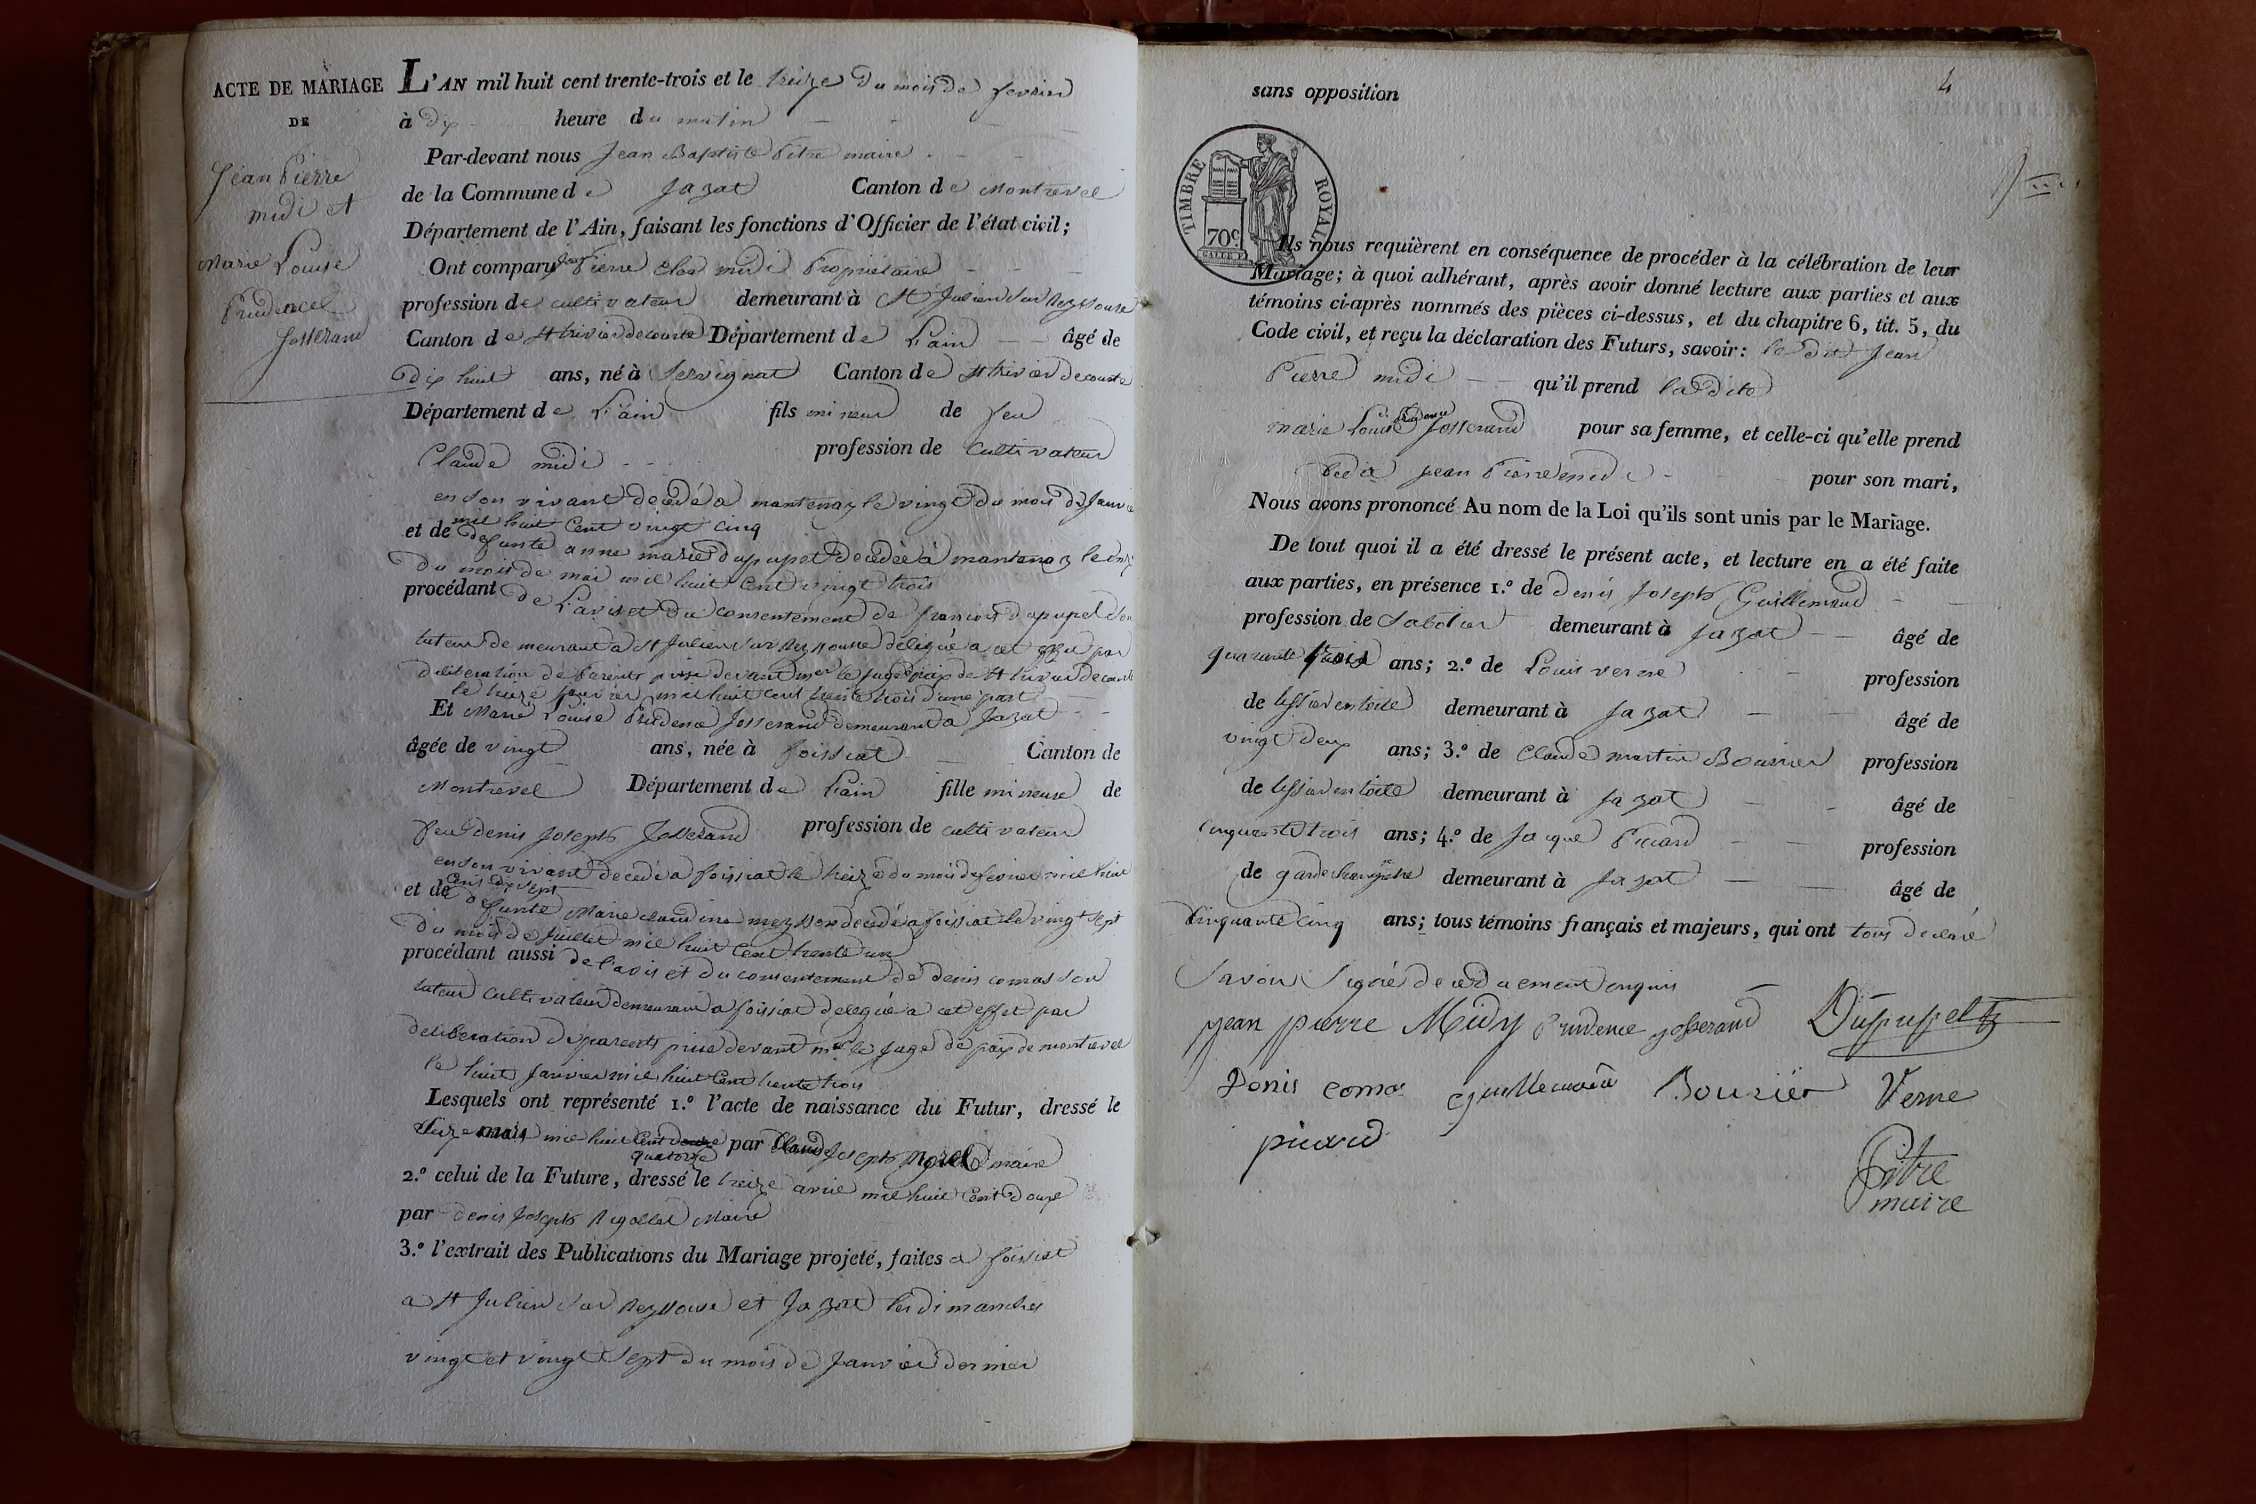 ACTE DE MARIAGE
DE
Jean Pierre
midi et
Marie Louise
Prudence
Josserand
L'AN mil huit cent trente-trois et le treize du mois de fevrier
à dix heure du matin
Par-devant nous Jean Baptiste Pitre maire
de la Commune de Jazat Canton de Montrevel
Département de l'Ain, faisant les fonctions d'Officier de l'état civil;
Ont comparu Jean Pierre midi Propriétaire
profession de cultivateur demeurant à St Julien Sur Reyssouse
Canton de St trivier de courte Département de L'ain âgé de
dix huit ans, né à Servignat Canton de St trivier de courte
Département de L'ain fils mineur de feu
Claude midi profession de Cultivateur
en son vivant decedé a mantenay le vingt du mois de Janvier
mil huit Cent vingt cinq
et de defunte anne marie dupupet decedée à mantenay le onze
du mois de mai mil huit Cent vingt trois
procédant de L'avis et du consentement de francois dupupet son
tuteur demeurant a St Julien Sur Reyssouse delegué a cet effet par
deliberation de Parents prise devant mr le Juge de paix de St trivier de courte
le treize Janvier mil huit cent trente trois d'une part
Et Marie Louise Prudence Josserand demeurant à Jazat
âgée de vingt ans, née à foissiat Canton de
Montrevel Département de L'ain fille mineure de
feu denis Joseph Josserand profession de cultivateur
en son vivant decedé a foissiat le treize du mois de fevrier mil huit
Cent dix sept
et de defunte Marie claudine meysson decedé a foissiat le vingt sept
du mois de Juillet mil huit Cent trente un
procédant aussi de l'avis et du consentement de denis comas son
tuteur Cultivateur demeurant a foissiat delegué a cet effet par
deliberation de parents prise devant mr le Juge de paix de montrevel
le huit Janvier mil huit Cent trente trois
Lesquels ont représenté 1.º l'acte de naissance du Futur, dressé le
mars mil huit Cent douze par Claude Joseph Morel maire
quatorze
2.º celui de la Future, dressé le treize avril mil huit Cent douze
par denis Joseph Rigollet Maire
3.º l'extrait des Publications du Mariage projeté, faites a foissiat
a St Julien Sur Reyssouse et Jazat les dimanches
vingt et vingt Sept du mois de Janvier dernier
4
sans opposition
TIMBRE ROYAL
70 c
Ils nous requièrent en conséquence de procéder à la célébration de leur
Mariage; à quoi adhérant, après avoir donné lecture aux parties et aux
témoins ci-après nommés des pièces ci-dessus, et du chapitre 6, tit. 5, du
Code civil, et reçu la déclaration des Futurs, savoir: le dit Jean
Pierre midi qu'il prend la dite
marie Louise Prudence Josserand pour sa femme, et celle-ci qu'elle prend
le dit Jean Pierre midi pour son mari,
Nous avons prononcé Au nom de la Loi qu'ils sont unis par le Mariage.
De tout quoi il a été dressé le présent acte, et lecture en a été faite
aux parties, en présence 1.º de denis Joseph Guillemaud
profession de Sabotier demeurant à Jazat âgé de
quarante trois ans; 2.º de Louis verne profession
de tissier en toile demeurant à Jazat âgé de
vingt deux ans; 3.º de Claude martin Bouvier profession
de tissier en toile demeurant à Jazat âgé de
cinquante trois ans; 4.º de Jaque Picard profession
de garde champetre demeurant à Jazat âgé de
cinquante cinq ans; tous témoins français et majeurs, qui ont tous declaré
Savoir Signé de ce duement enquis
jean pierre Midy prudence josserand Dupupet
Denis comas guillemaud Bouvier Verne
picard
Pitre
maire